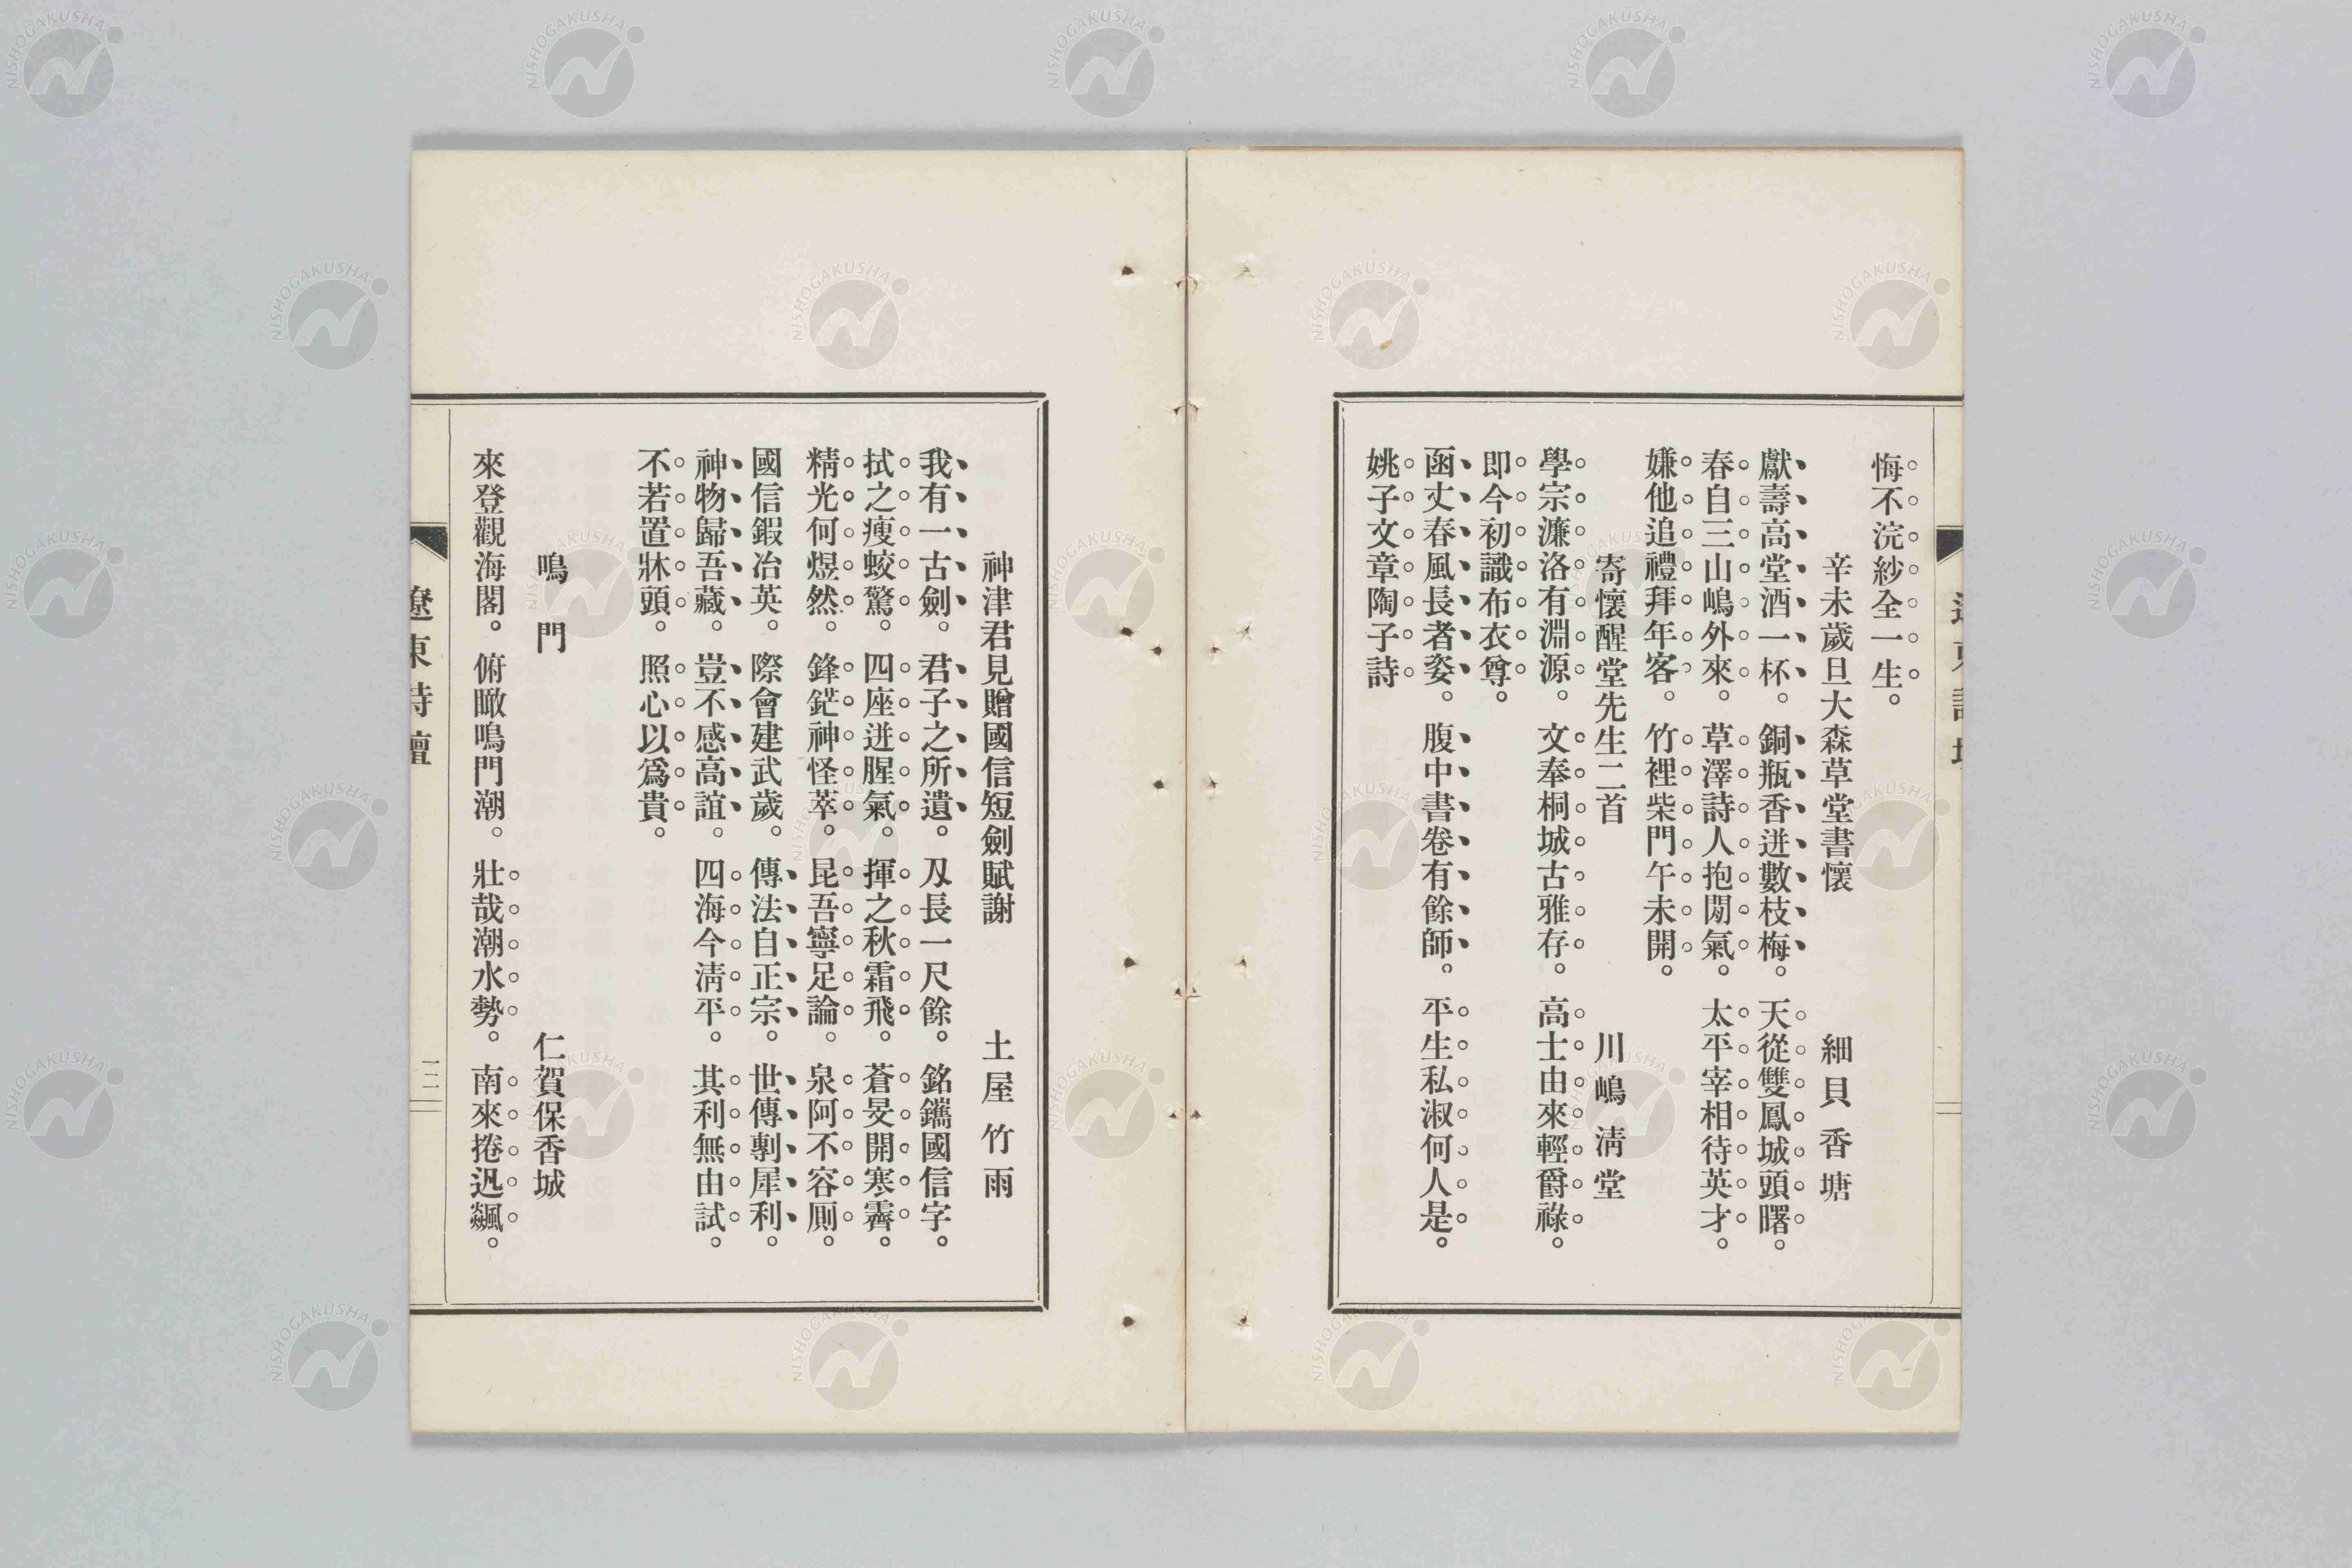 悔不浣紗全一生。
辛未歲旦大森草堂書懷　細貝香塘
獻壽高堂酒一杯。銅瓶香迸數枝梅。天從雙鳳城頭曙。
春自三山嶋外來。草澤詩人抱閒氣。太平宰相待英才。
嫌他追禮拜年客。竹裡柴門午未開。
寄懷醒堂先生二首　川嶋淸堂
學宗濂洛有淵源。文奉桐城古雅存。高士由來輕爵祿。
即今初識布衣尊。
函丈春風長者姿。腹中書卷有餘師。平生私淑何人是。
姚子文章陶子詩
神津君見贈國信短劍賦謝　土屋竹雨
我有一古劍。君子之所遺。刄長一尺餘。銘鐫國信字。
拭之瘦蛟驚。四座迸腥氣。揮之秋霜飛。蒼旻開寒霽。
精光何煜然。鋒鋩神怪萃。昆吾寧足論。泉阿不容厠。
國信鍜冶英。際會建武歲。傳法自正宗。世傳剸犀利。
神物歸吾藏。豈不感高誼。四海今淸平。其利無由試。
不若置牀頭。照心以爲貴。
鳴門　仁賀保香城
來登觀海閣。俯瞰鳴門潮。壯哉潮水勢。南來捲迅飊。
遼東詩壇
一二
NISHOGAKUSHA